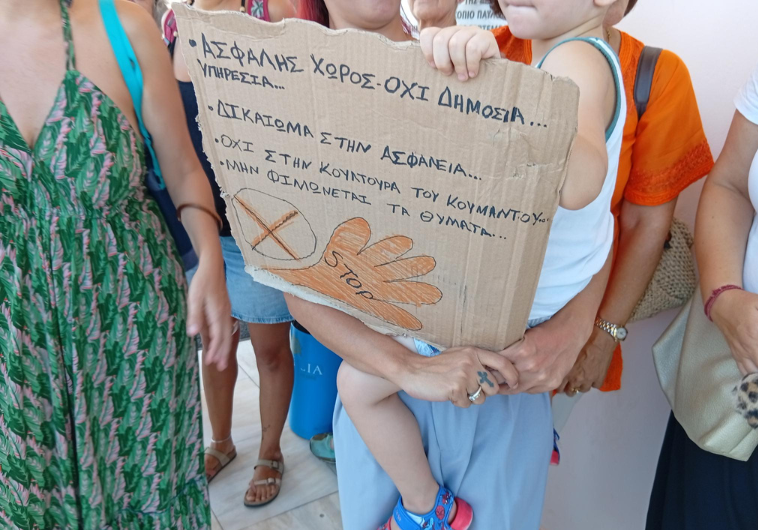 ΤΗΣ
ΟΠΙΟ
• ΑΣΦΑΛΗΣ ΧΩΡΟΣ-ΟΧΙ ΔΗΜΟΣΙΑ...
ΥΠΗΡΕΣΙΑ...
• ΔΙΚΑΙΩΜΑ ΣΤΗΝ ΑΣΦΑΛΕΙΑ...
• ΟΧΙ ΣΤΗΝ ΚΟΥΛΤΟΥΡΑ ΤΟΥ ΚΟΥΜΑΝΤΟΥ...
• ΜΗΝ ΦΙΜΩΝΕΤΑΙ ΤΑ ΘΥΜΑΤΑ...
STOP